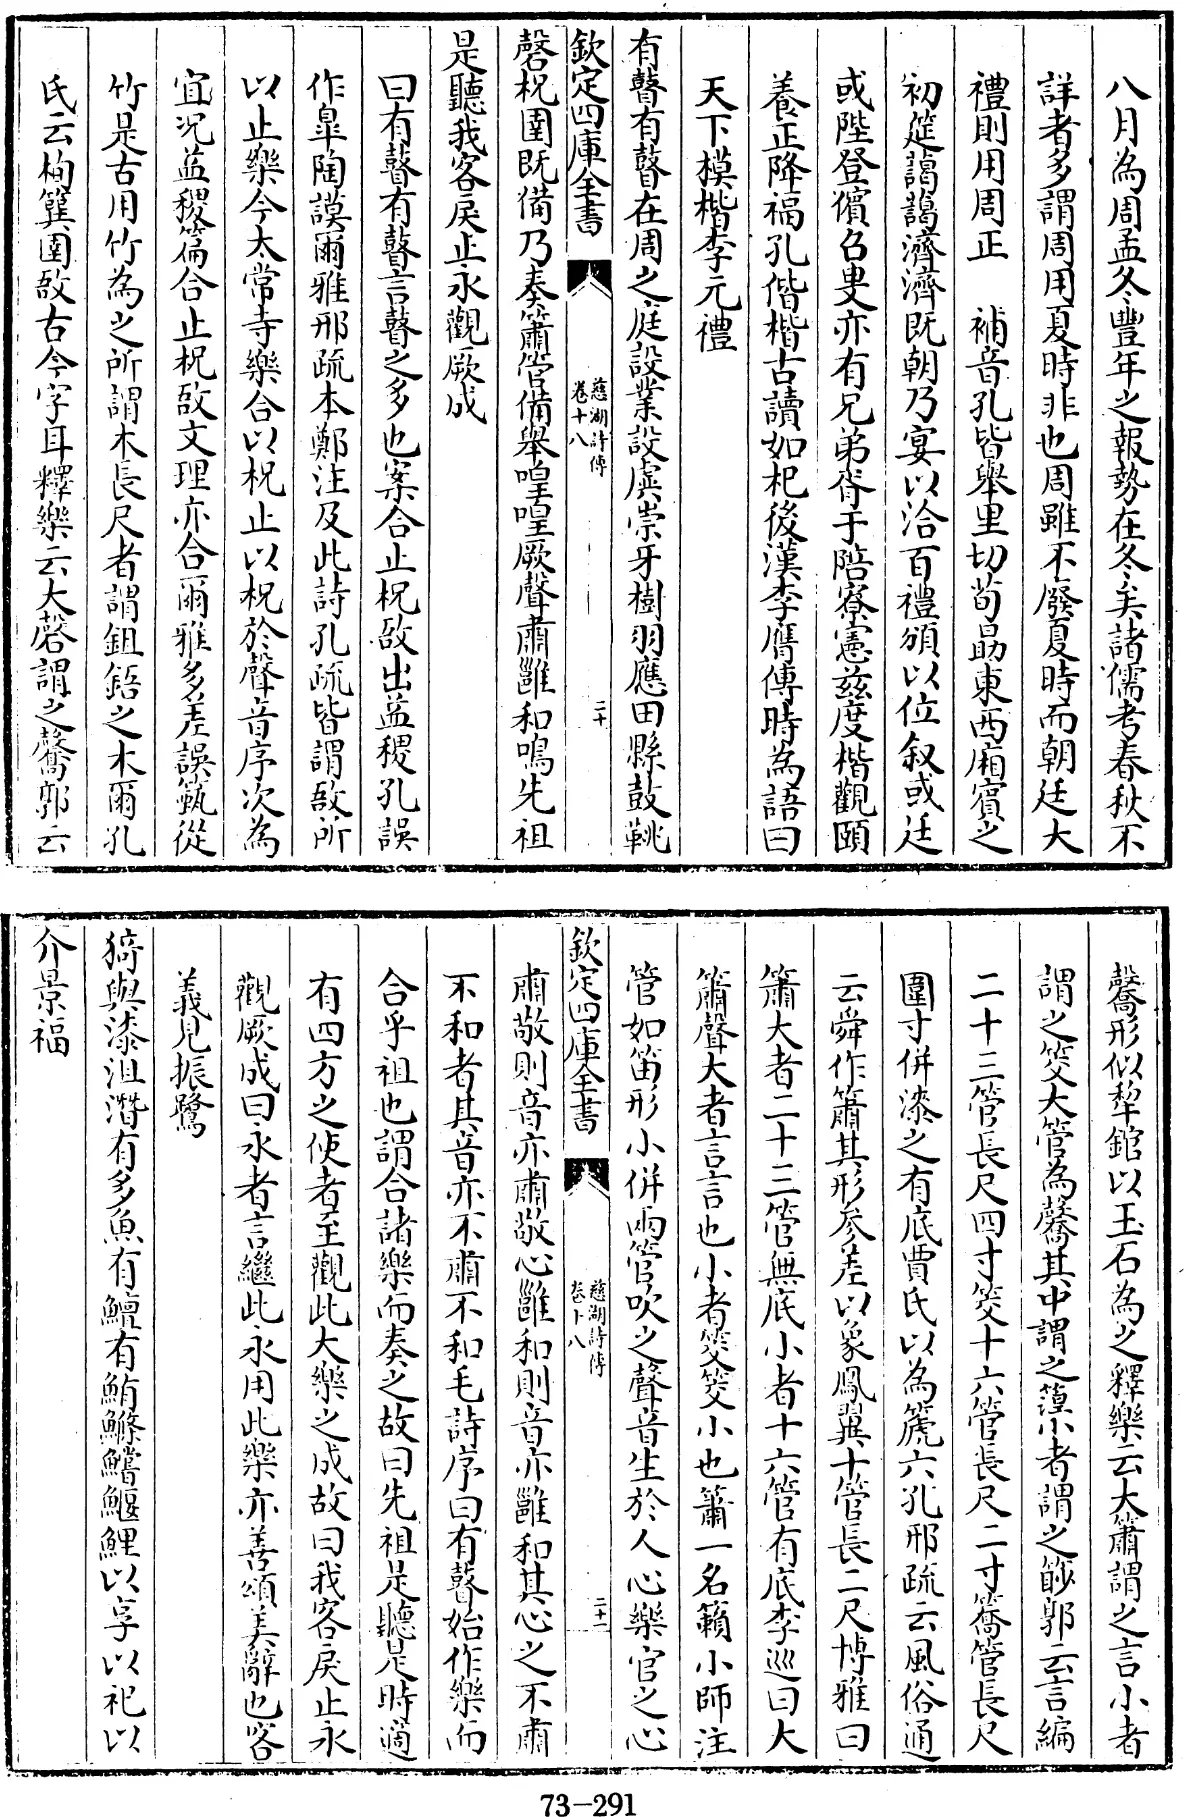 八月為周孟冬豐年之報勢在冬矣諸儒考春秋不
詳者多謂周用夏時非也周雖不廢夏時而朝廷大
禮則用周正　補音孔皆舉里切苟勗東西廂賓之
初筵藹藹濟濟既朝乃宴以洽百禮頒以位叙或廷
或陛登儐台叟亦有兄弟胥于陪寮憲兹度楷觀頤
養正降福孔偕楷古讀如杞後漢李膺傳時為語曰
天下模楷李元禮
有瞽有瞽在周之庭設業設虡崇牙樹羽應田縣鼓鞉
欽定四庫全書
慈湖詩傳
卷十八
二十
磬柷圉既備乃奏簫管備舉喤喤厥聲肅雝和鳴先祖
是聽我客戾止永觀厥成
曰有瞽有瞽言瞽之多也案合止柷敔出益稷孔誤
作臯陶謨爾雅邢疏本鄭注及此詩孔疏皆謂敔所
以止樂今太常寺樂合以柷止以柷於聲音序次為
宜况益稷篇合止柷敔文理亦合爾雅多差誤簨從
竹是古用竹為之所謂木長尺者謂鉏鋙之木爾孔
氏云栒簨圉敔古今字耳釋樂云大磬謂之毊郭云
毊形似犂錧以玉石為之釋樂云大簫謂之言小者
謂之筊大管為毊其中謂之篞小者謂之篎郭云言編
二十三管長尺四寸筊十六管長尺二寸簥管長尺
圍寸併漆之有底賈氏以為箎六孔邢疏云風俗通
云舜作簫其形參差以象鳳翼十管長二尺博雅曰
簫大者二十三管無底小者十六管有底李巡曰大
簫聲大者言言也小者筊筊小也簫一名籟小師注
管如笛形小併兩管吹之聲音生於人心樂官之心
欽定四庫全書
慈湖詩傳
卷十八
二十一
肅敬則音亦肅敬心雝和則音亦雝和其心之不肅
不和者其音亦不肅不和毛詩序曰有瞽始作樂而
合乎祖也謂合諸樂而奏之故曰先祖是聽是時適
有四方之使者至觀此大樂之成故曰我客戾止永
觀厥成曰永者言繼此永用此樂亦善頌美辭也客
義見振鷺
猗與漆沮潛有多魚有鱣有鮪鰷鱨鰋鯉以享以祀以
介景福
73-291